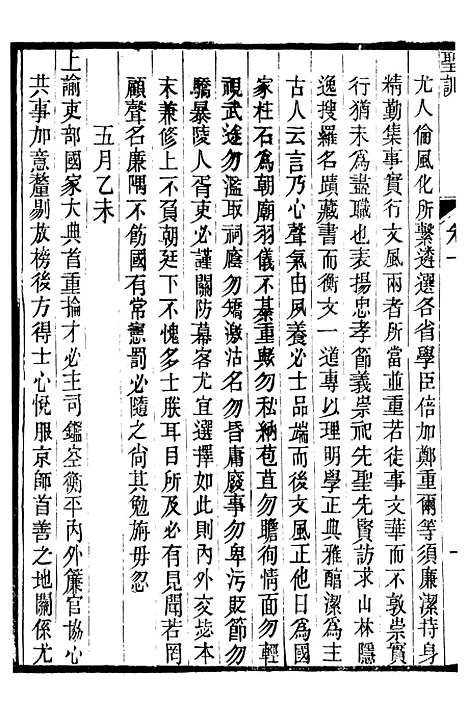 聖訓
卷一
一
尤人倫風化所繫遴選各省學臣倍加鄭重爾等須廉潔持身
精勤集事實行文風兩者所當並重若徒事文華而不敦崇實
行猶未爲盡職也表揚忠孝節義崇祀先聖先賢訪求山林隱
逸搜羅名蹟藏書而衡文一道專以理明學正典雅醇潔爲主
古人云言乃心聲氣由夙養必士品端而後文風正他日爲國
家柱石爲朝廟羽儀不綦重歟勿私納苞苴勿瞻徇情面勿輕
視武途勿濫取祠廕勿矯激沽名勿昏庸廢事勿卑污貶節勿
驕暴陵人胥吏必謹關防幕客尤宜選擇如此則內外交毖本
末兼修上不負朝廷下不愧多士朕耳目所及必有見聞若罔
顧聲名廉隅不飭國有常憲罰必隨之尚其勉旃毋忽
五月乙未
上諭吏部國家大典首重掄才必主司鑑空衡平內外簾官協心
共事加意釐剔放榜後方得士心悅服京師首善之地關係尤